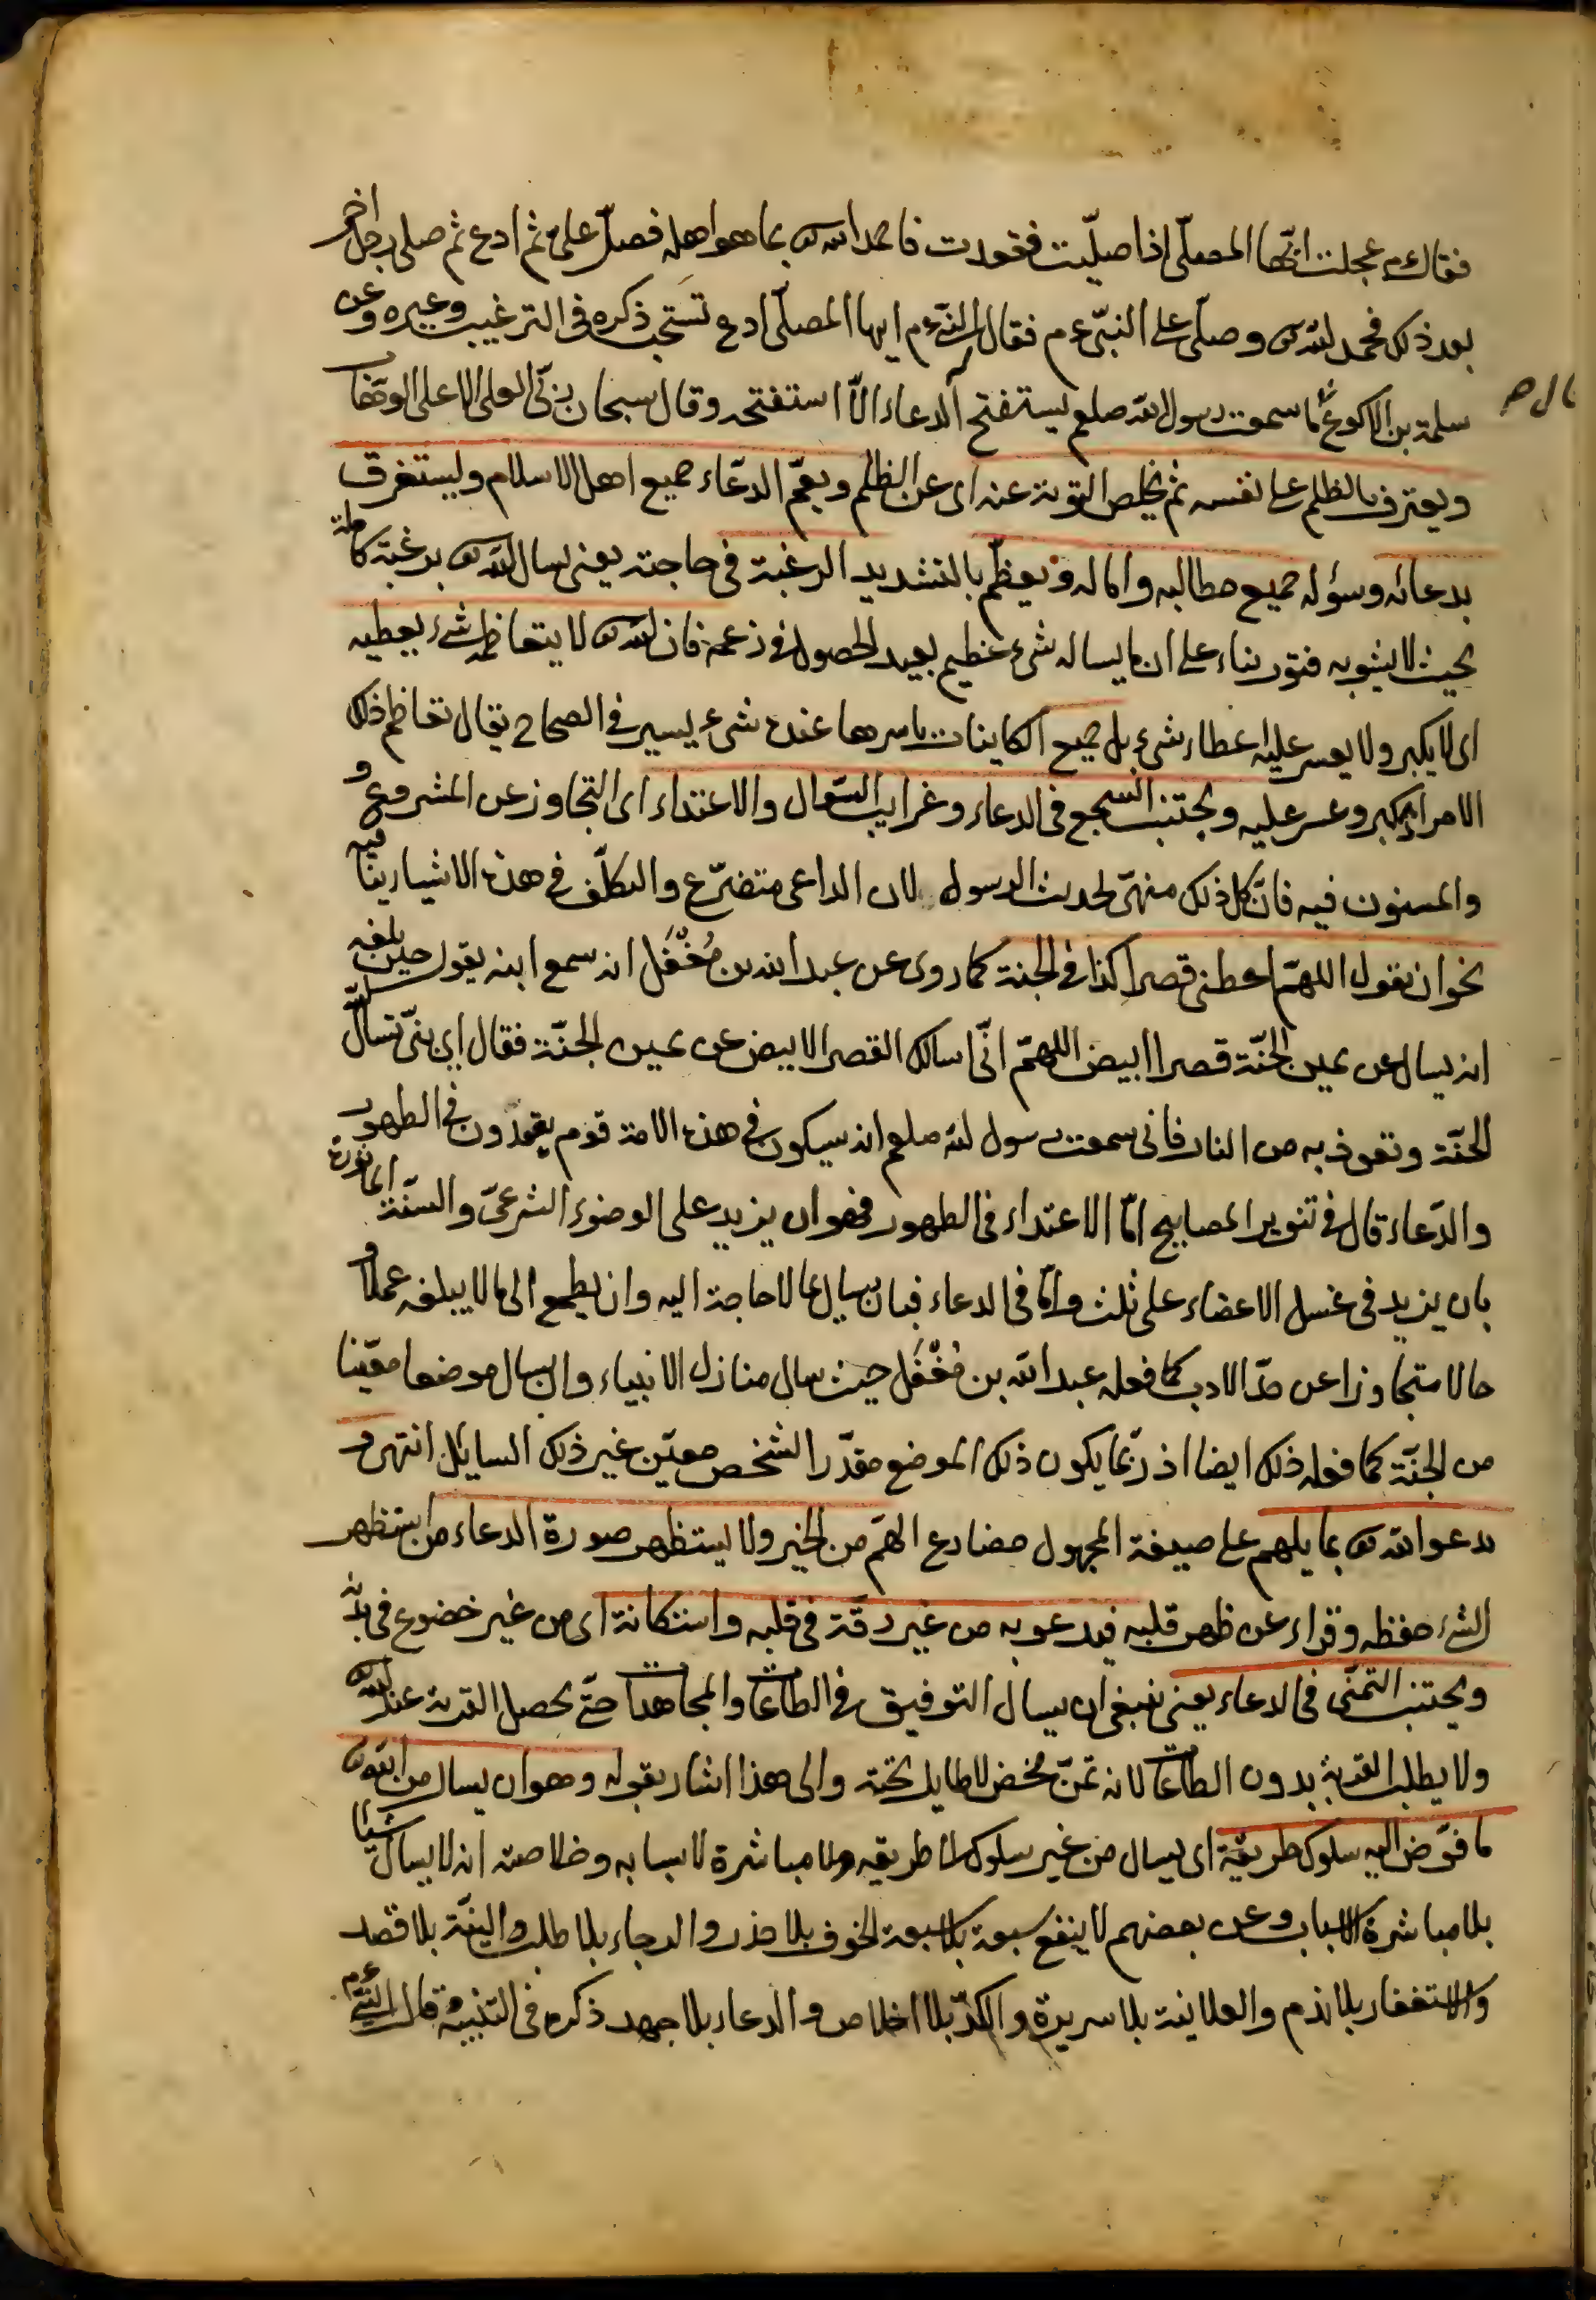 فقال م عجلت ايّها المصلّى اذا صليّت فقعدت فاحمد الله تع بما هو اهله فصلّ على ثم ادع ثم صلى رجل اخر
بعد ذلك فحمد الله تع وصلّى على النبىّ ع م فقال له النبى ع م ايها المصلّى ادع تستجب ذكره فى الترغيب وغيره وعن
سلمة بن الاكوع ما سمعت رسول الله صلعم يستفتح الدعاء الّا استفتحه وقال سبحان ربّى العلى الاعلى الوهّاب
ويعترف بالظلم على نفسه ثم يخلص التوبة عنه اى عن الظلم ويعمّ الدعّاء جميع اهل الاسلام وليستغرق
بدعائه وسؤله جميع مطالبه واماله ويعظّم بالتشديد الرغبة فى حاجته يعنى يسال الله تع برغبة كاملة
بحيث لا يشوبه فتور بناء على ان ما يساله شىء عظيم بعيد الحصول فى زعمه فان الله تع لا يتعاظمه شىء يعطيه
اى لا يكبر ولا يعسر عليه اعطاء شىء بل جميع الكاينات باسرها عنده شىء يسير فى الصحاح يقال تعاظم ذلك
الامر اى كبر وعسر عليه ويجتنب السجع فى الدعاء وغرايب السّؤال والاعتداء اى التجاوز عن المشروع و
والمسنون فيه فانّ كل ذلك منهىّ لحديث الرسول لان الداعى متضرّع والتكلّف فى هذه الاشيا ينافيه
نحو ان يقول اللهمّ اعطنى قصرا كذا فى الجنة كما روى عن عبد الله بن مُغَفَّل انه سمع ابنه يقول حين بلغه
انه يسال عن يمين الجنّة قصرا ابيض اللهمّ انّى اسالك القصر الابيض عن يمين الجنّة فقال اى بنىّ تسال الله
الجنّة وتعوذ به من النار فانى سمعت رسول الله صلعم انه سيكون فى هذه الامة قوم يعتدون فى الطهور
والدّعاء قال فى تنوير المصابيح امّا الاعتداء فى الطهور فهو ان يزيد على الوضوء الشرعىّ والسنّة الماثورة
بان يزيد فى غسل الاعضاء على ثلث وامّا فى الدعاء فبان يسال ما لا حاجة اليه وان يطمع الى ما لا يبلغه عملا و
حالا متجاوزا عن حدّ الادب كما فعله عبد الله بن مُغَفَّل حيث سال منازل الانبياء وان يسال موضعا معيّنا
من الجنّة كما فعله ذلك ايضا اذ ربّما يكون ذلك الموضع مقدّرا لشخص معيّن غير ذلك السايل انتهى و
يدعو الله تع بما يلهم على صيغة المجهول مضارع الهم من الخير ولا يستظهر صورة الدعاء من استظهر
الشىء حفظه وقراء عن ظهر قلبه فيدعو به من غير رقّة فى قلبه واستكانة اى من غير خضوع فى بدنه
ويجتنب التمنّى فى الدعاء يعنى ينبغى ان يسال التوفيق فى الطاعات والمجاهدات حتّى يحصل القربة عند الله تع
ولا يطلب القربة بدون الطاعات لانه تمنّ محض لا طايل تحته والى هذا اشار بقوله وهو ان يسال من الله تع
ما فوّض اليه سلوك طريقه اى يسال من غير سلوك الى طريقه ولا مباشرة لاسبابه وخلاصته انه لا يسال شيئا
بلا مباشرة الاسباب وعن بعضهم لا ينفع سبعة بلا سبعة الخوف بلا حذر والرجاء بلا طلب والنيّة بلا قصد
والاستغفار بلا ندم والعلانية بلا سريرة والكدّ بلا اخلاص والدعاء بلا جهد ذكره فى التنبيه قال النبى ع م